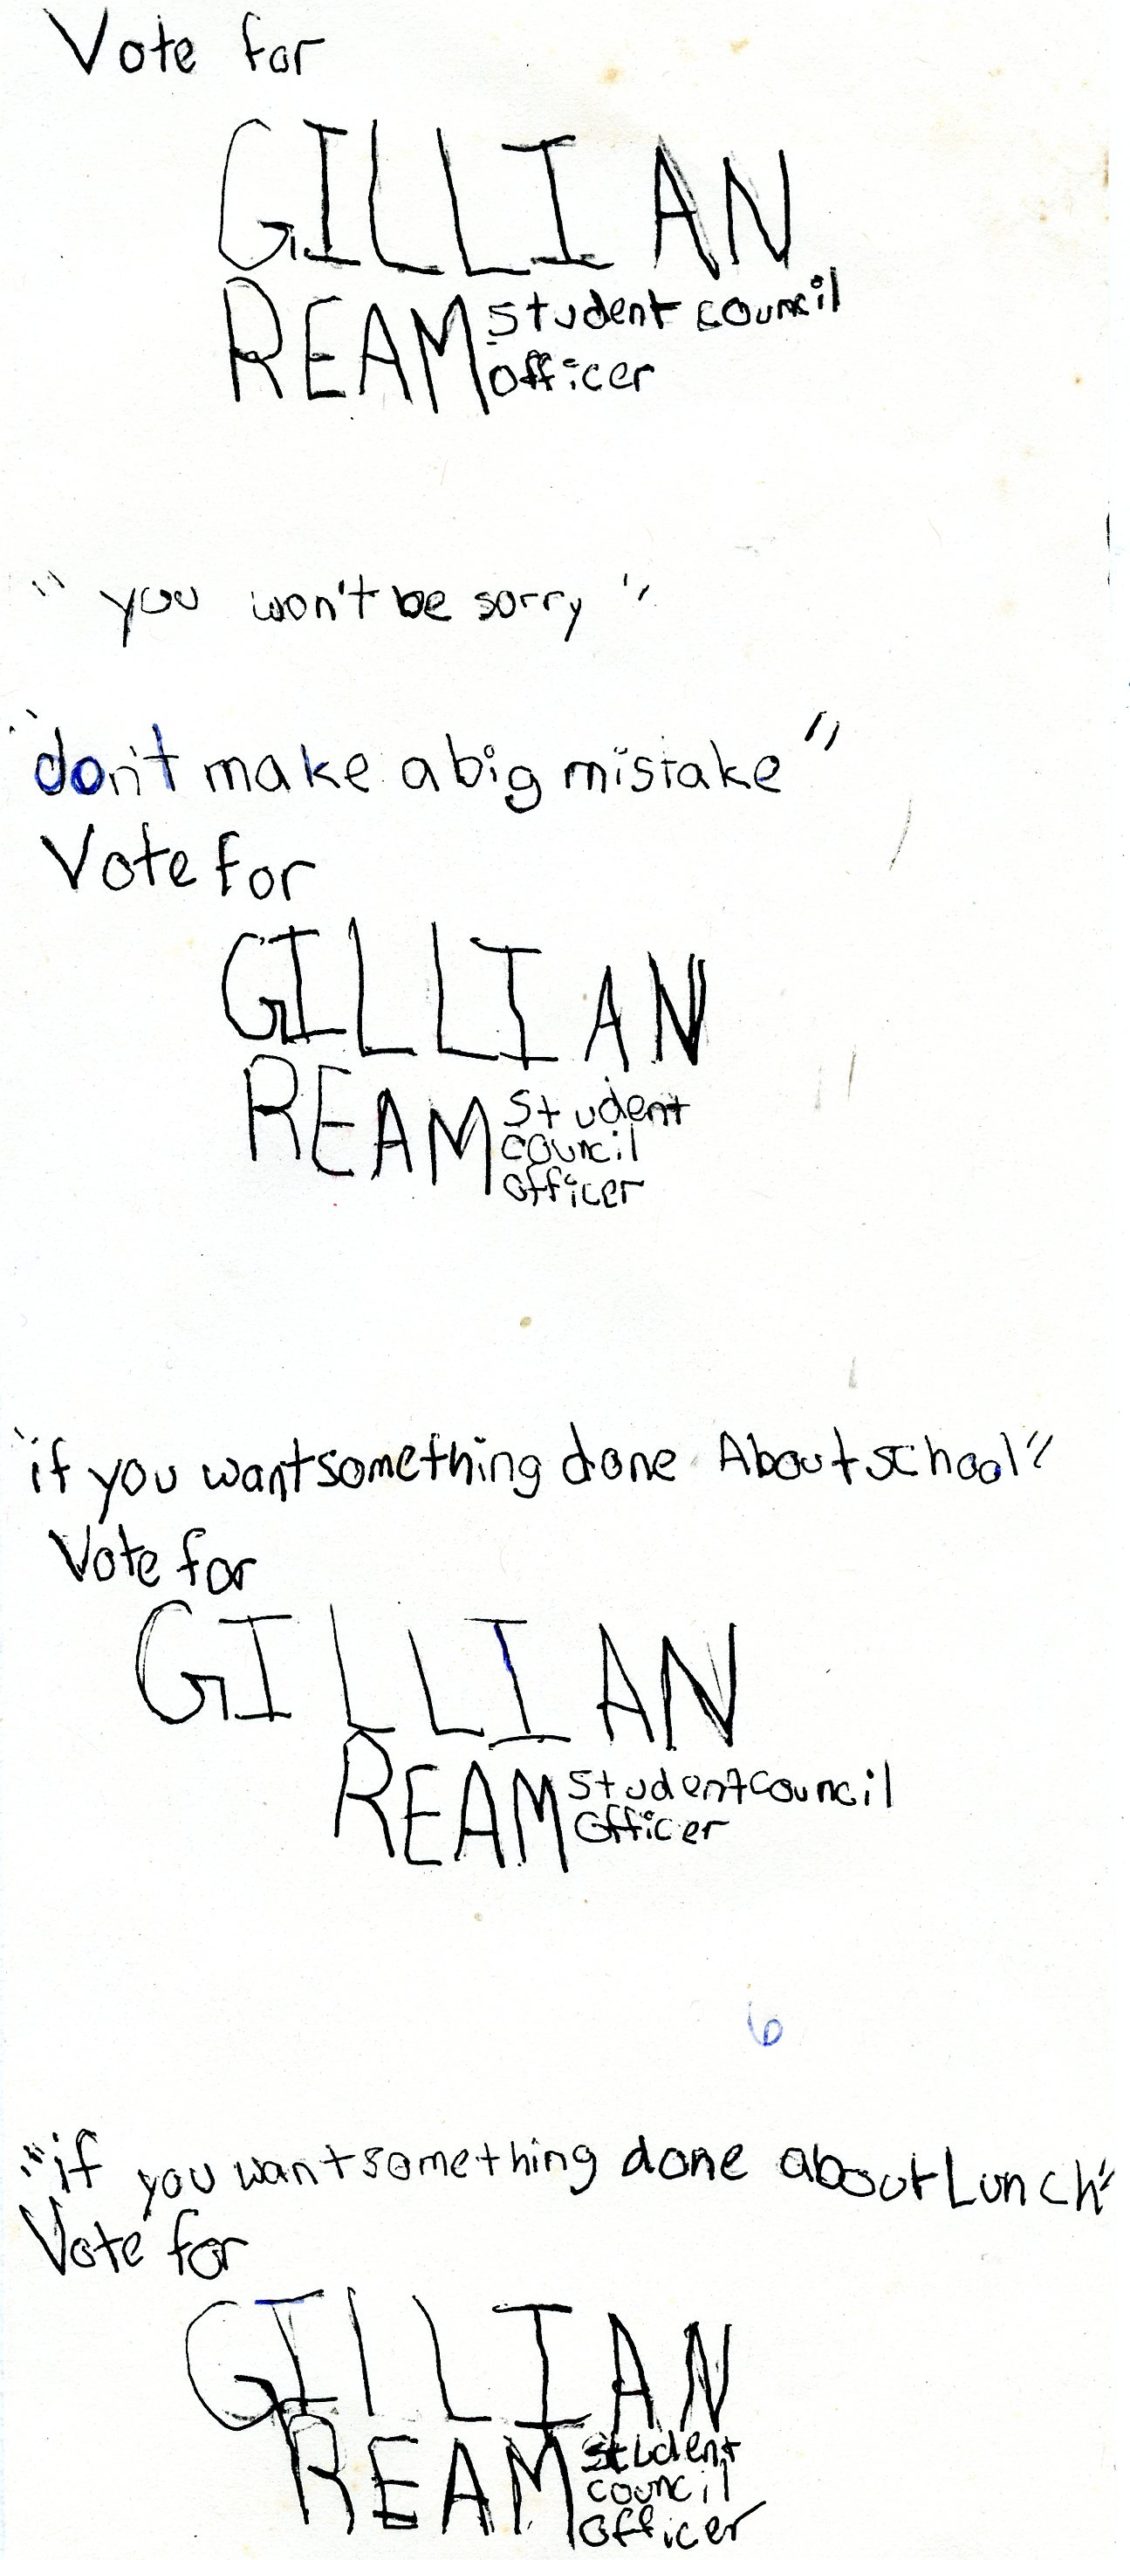 Vote for
GILLIAN
REAM student council
officer
"you won't be sorry"
"don't make a big mistake"
Vote for
GILLIAN
REAM student
council
officer
"if you want something done About school"
Vote for
GILLIAN
REAM student council
officer
6
"if you want something done about Lunch"
Vote for
GILLIAN
REAM student
council
officer